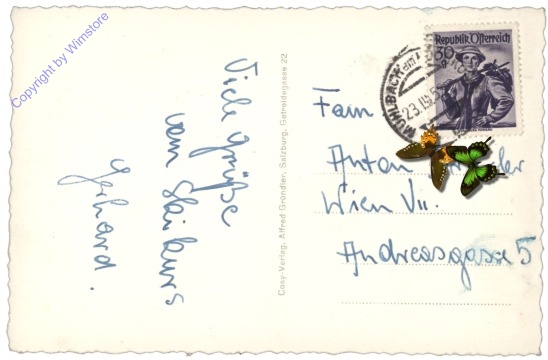 Copyright by Wimstore
Viele Grüße
vom
Gerhard.
Cosy-Verlag, Alfred Gründler, Salzburg, Getreidegasse 22
Republik Österreich
30
g
MÜHLBACH
23.
Fam
Anton
Wien VII.
Andreasgasse 5